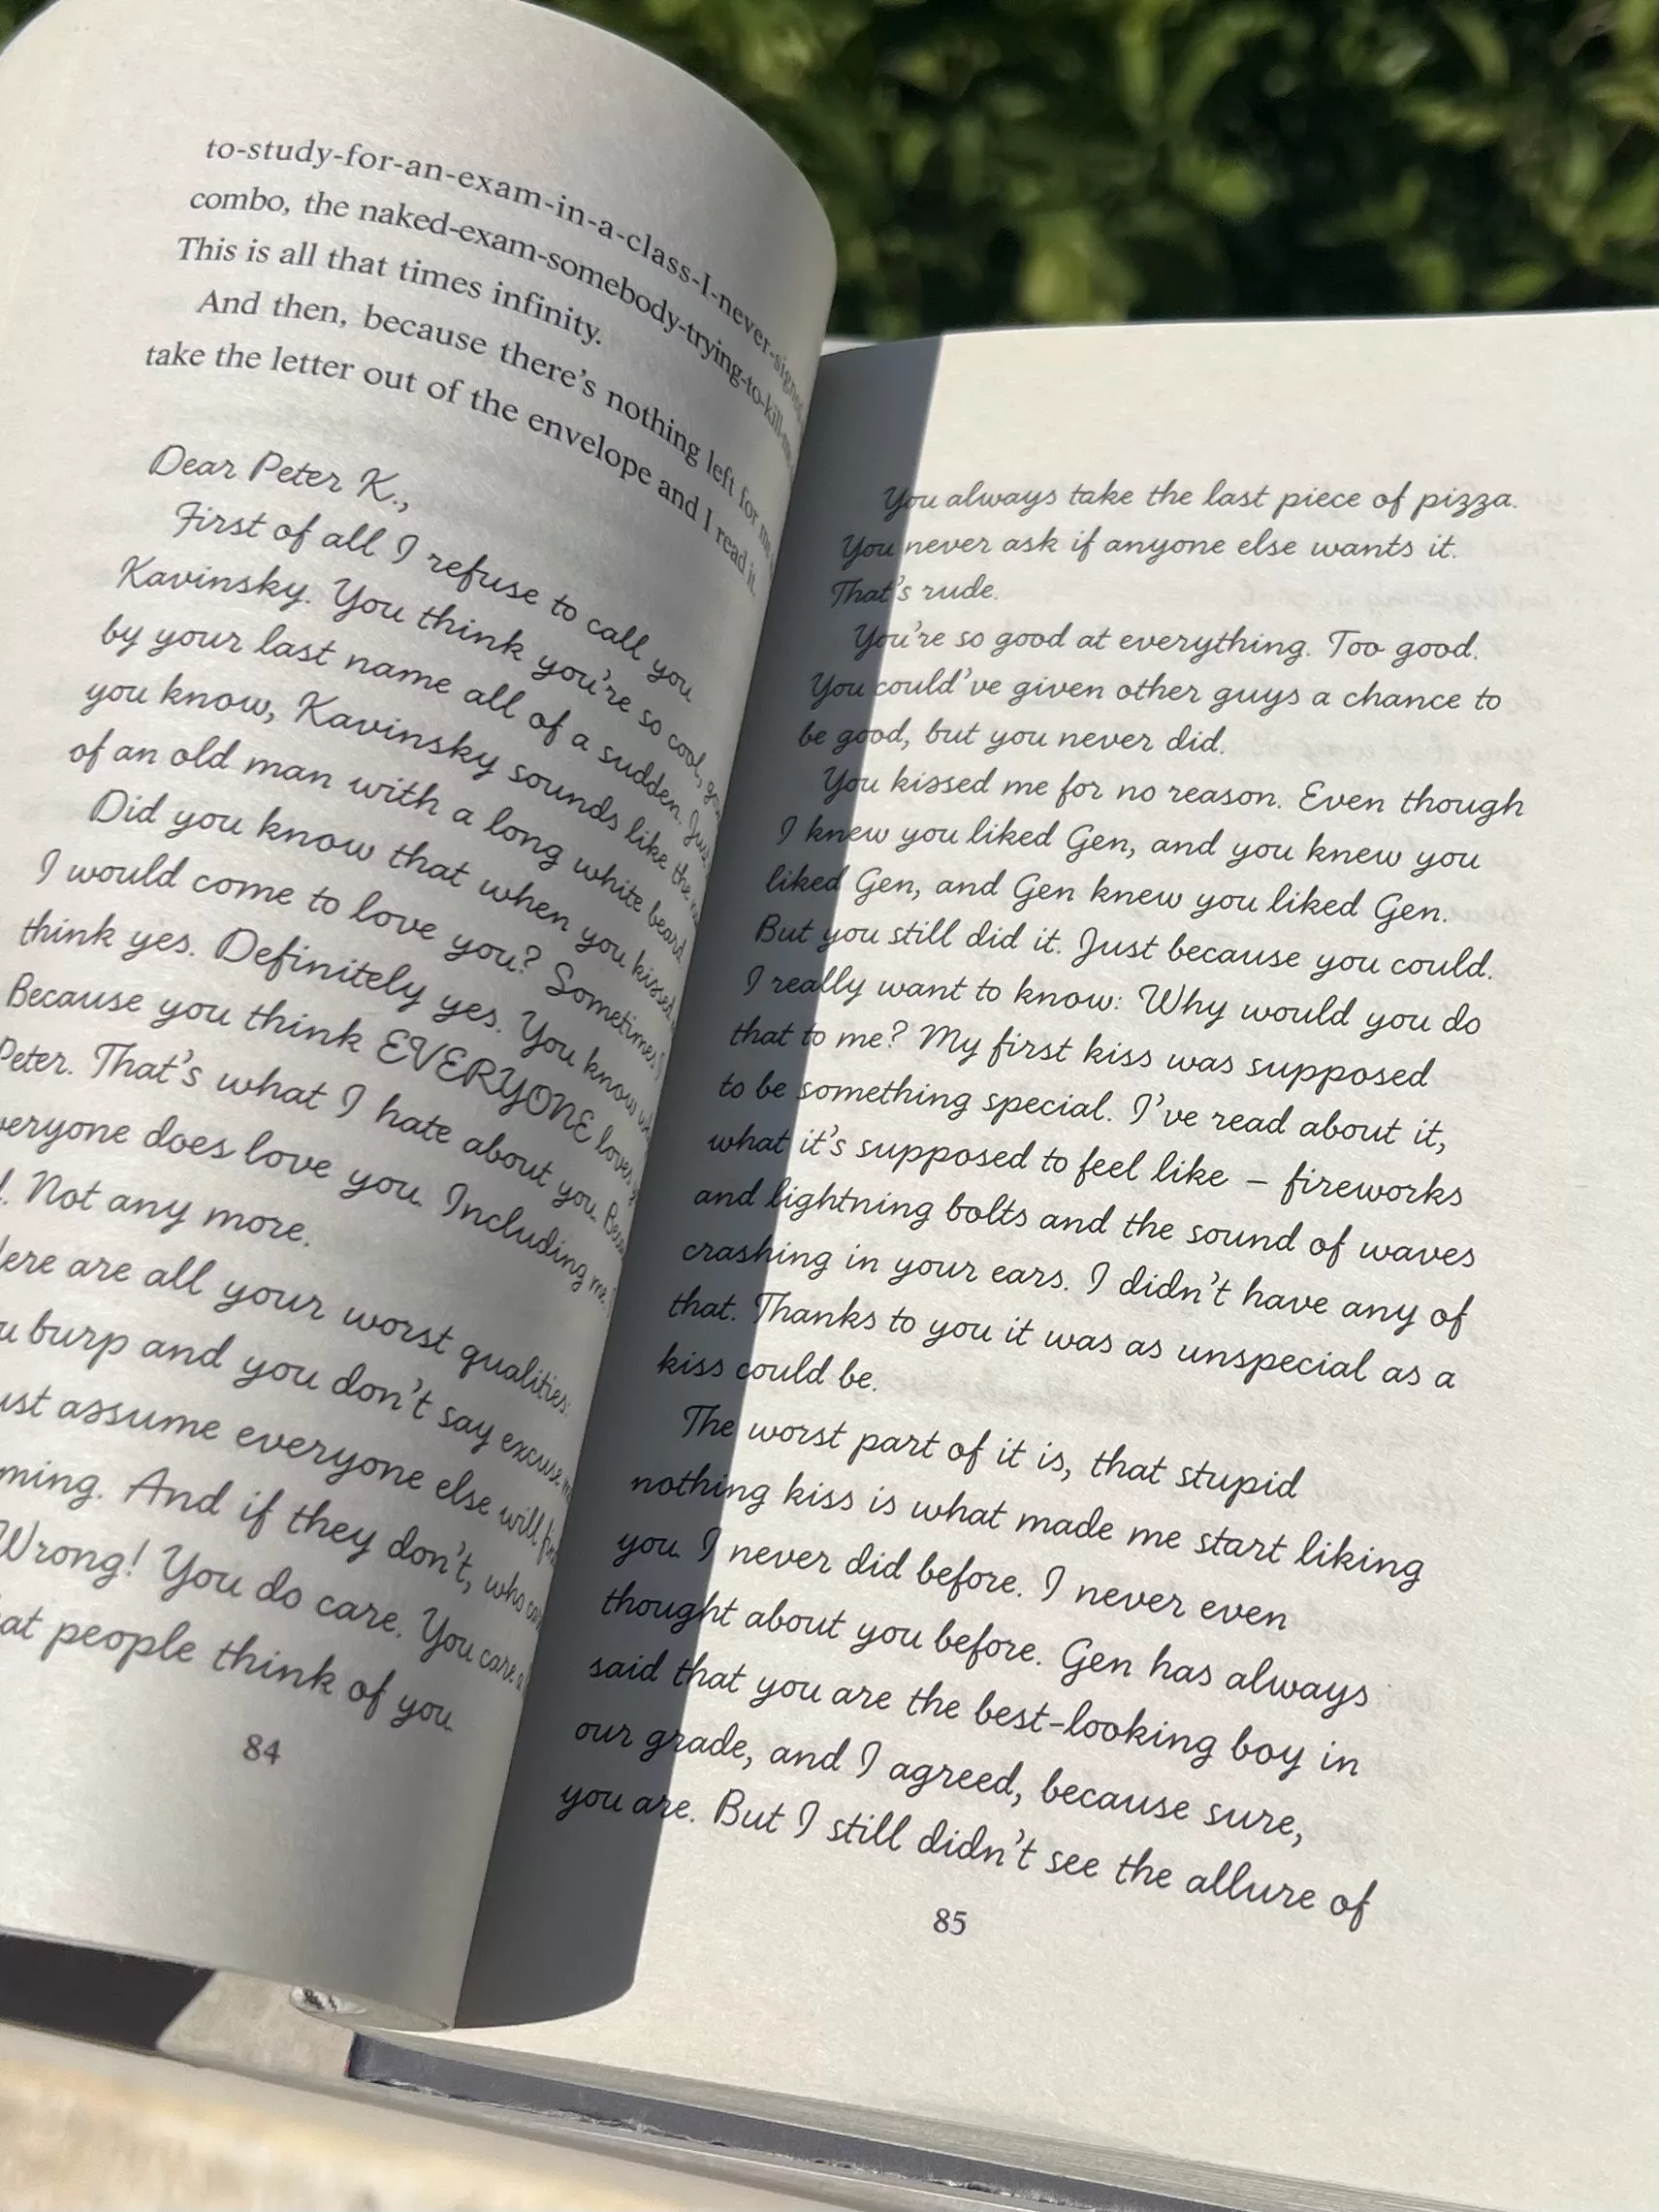 to-study-for-an-exam-in-a-class-I-never-signed
combo, the naked-exam-somebody-trying-to-kill-me
This is all that times infinity.
And then, because there's nothing left for me
take the letter out of the envelope and I read it.
Dear Peter K.,
First of all I refuse to call you
Kavinsky. You think you're so cool,
by your last name all of a sudden. Just
you know, Kavinsky sounds like the
of an old man with a long white beard.
Did you know that when you kissed
I would come to love you? Sometimes I
think yes. Definitely yes. You know
Because you think EVERYONE loves
Peter. That's what I hate about you.
everyone does love you. Including me.
Not any more.
Here are all your worst qualities:
burp and you don't say excuse
just assume everyone else will
And if they don't, who
Wrong! You do care. You care
people think of you.
84
You always take the last piece of pizza.
You never ask if anyone else wants it.
That's rude.
You're so good at everything. Too good.
You could've given other guys a chance to
be good, but you never did.
You kissed me for no reason. Even though
I knew you liked Gen, and you knew you
liked Gen, and Gen knew you liked Gen.
But you still did it. Just because you could.
I really want to know: Why would you do
that to me? My first kiss was supposed
to be something special. I've read about it,
what it's supposed to feel like – fireworks
and lightning bolts and the sound of waves
crashing in your ears. I didn't have any of
that. Thanks to you it was as unspecial as a
kiss could be.
The worst part of it is, that stupid
nothing kiss is what made me start liking
you. I never did before. I never even
thought about you before. Gen has always
said that you are the best-looking boy in
our grade, and I agreed, because sure,
you are. But I still didn't see the allure of
85